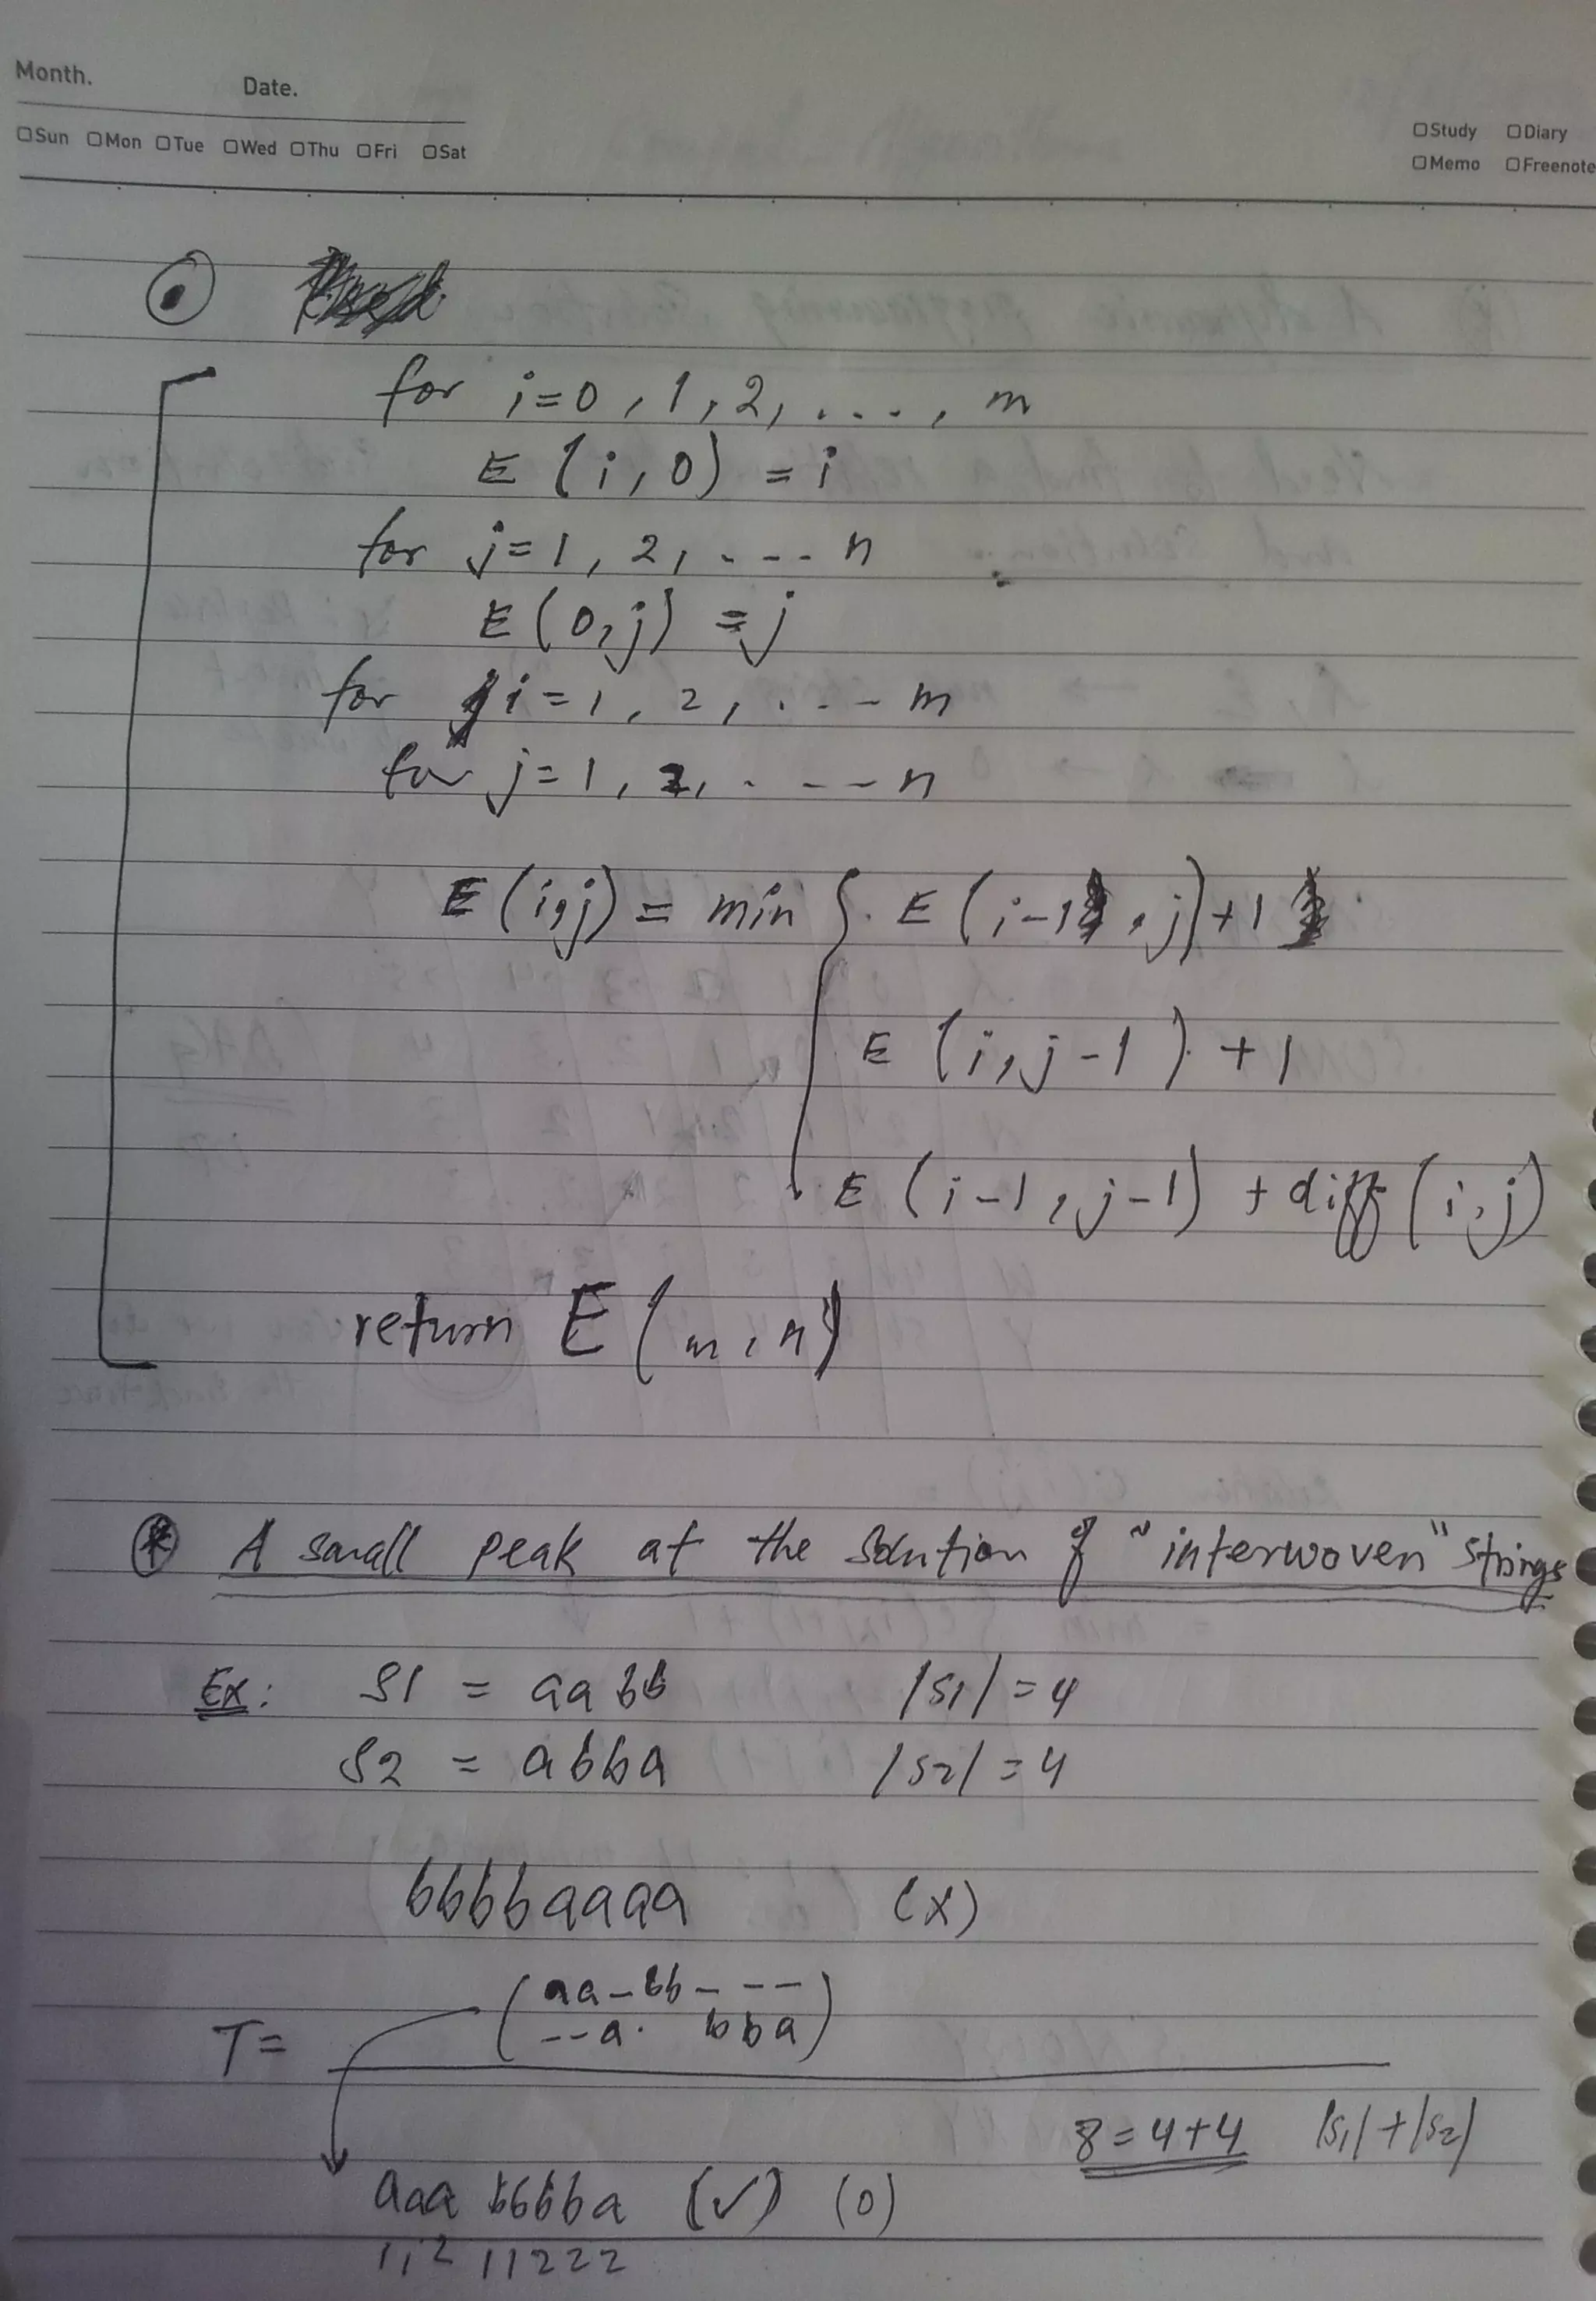 Month. Date.
Sun Mon Tue Wed Thu Fri Sat
Study Diary
Memo Freenote
for i=0, 1, 2, ...., m
E (i, 0) = i
for j=1, 2, .... n
E (0, j) = j
for i=1, 2, .... m
for j=1, 2, .... n
E (i, j) = min { E (i-1, j)+1
E (i, j-1) + 1
E (i-1, j-1) + diff (i, j)
return E (m, n)
* A small peak at the solution of "interwoven" strings
Ex: S1 = aabb |S1| = 4
S2 = abba |S2| = 4
bbbbaaaa (x)
(aa-bb- --
--a. bba)
T=
8=4+4 |S1|+|S2|
aaa bbbba (✓) (0)
112 11222